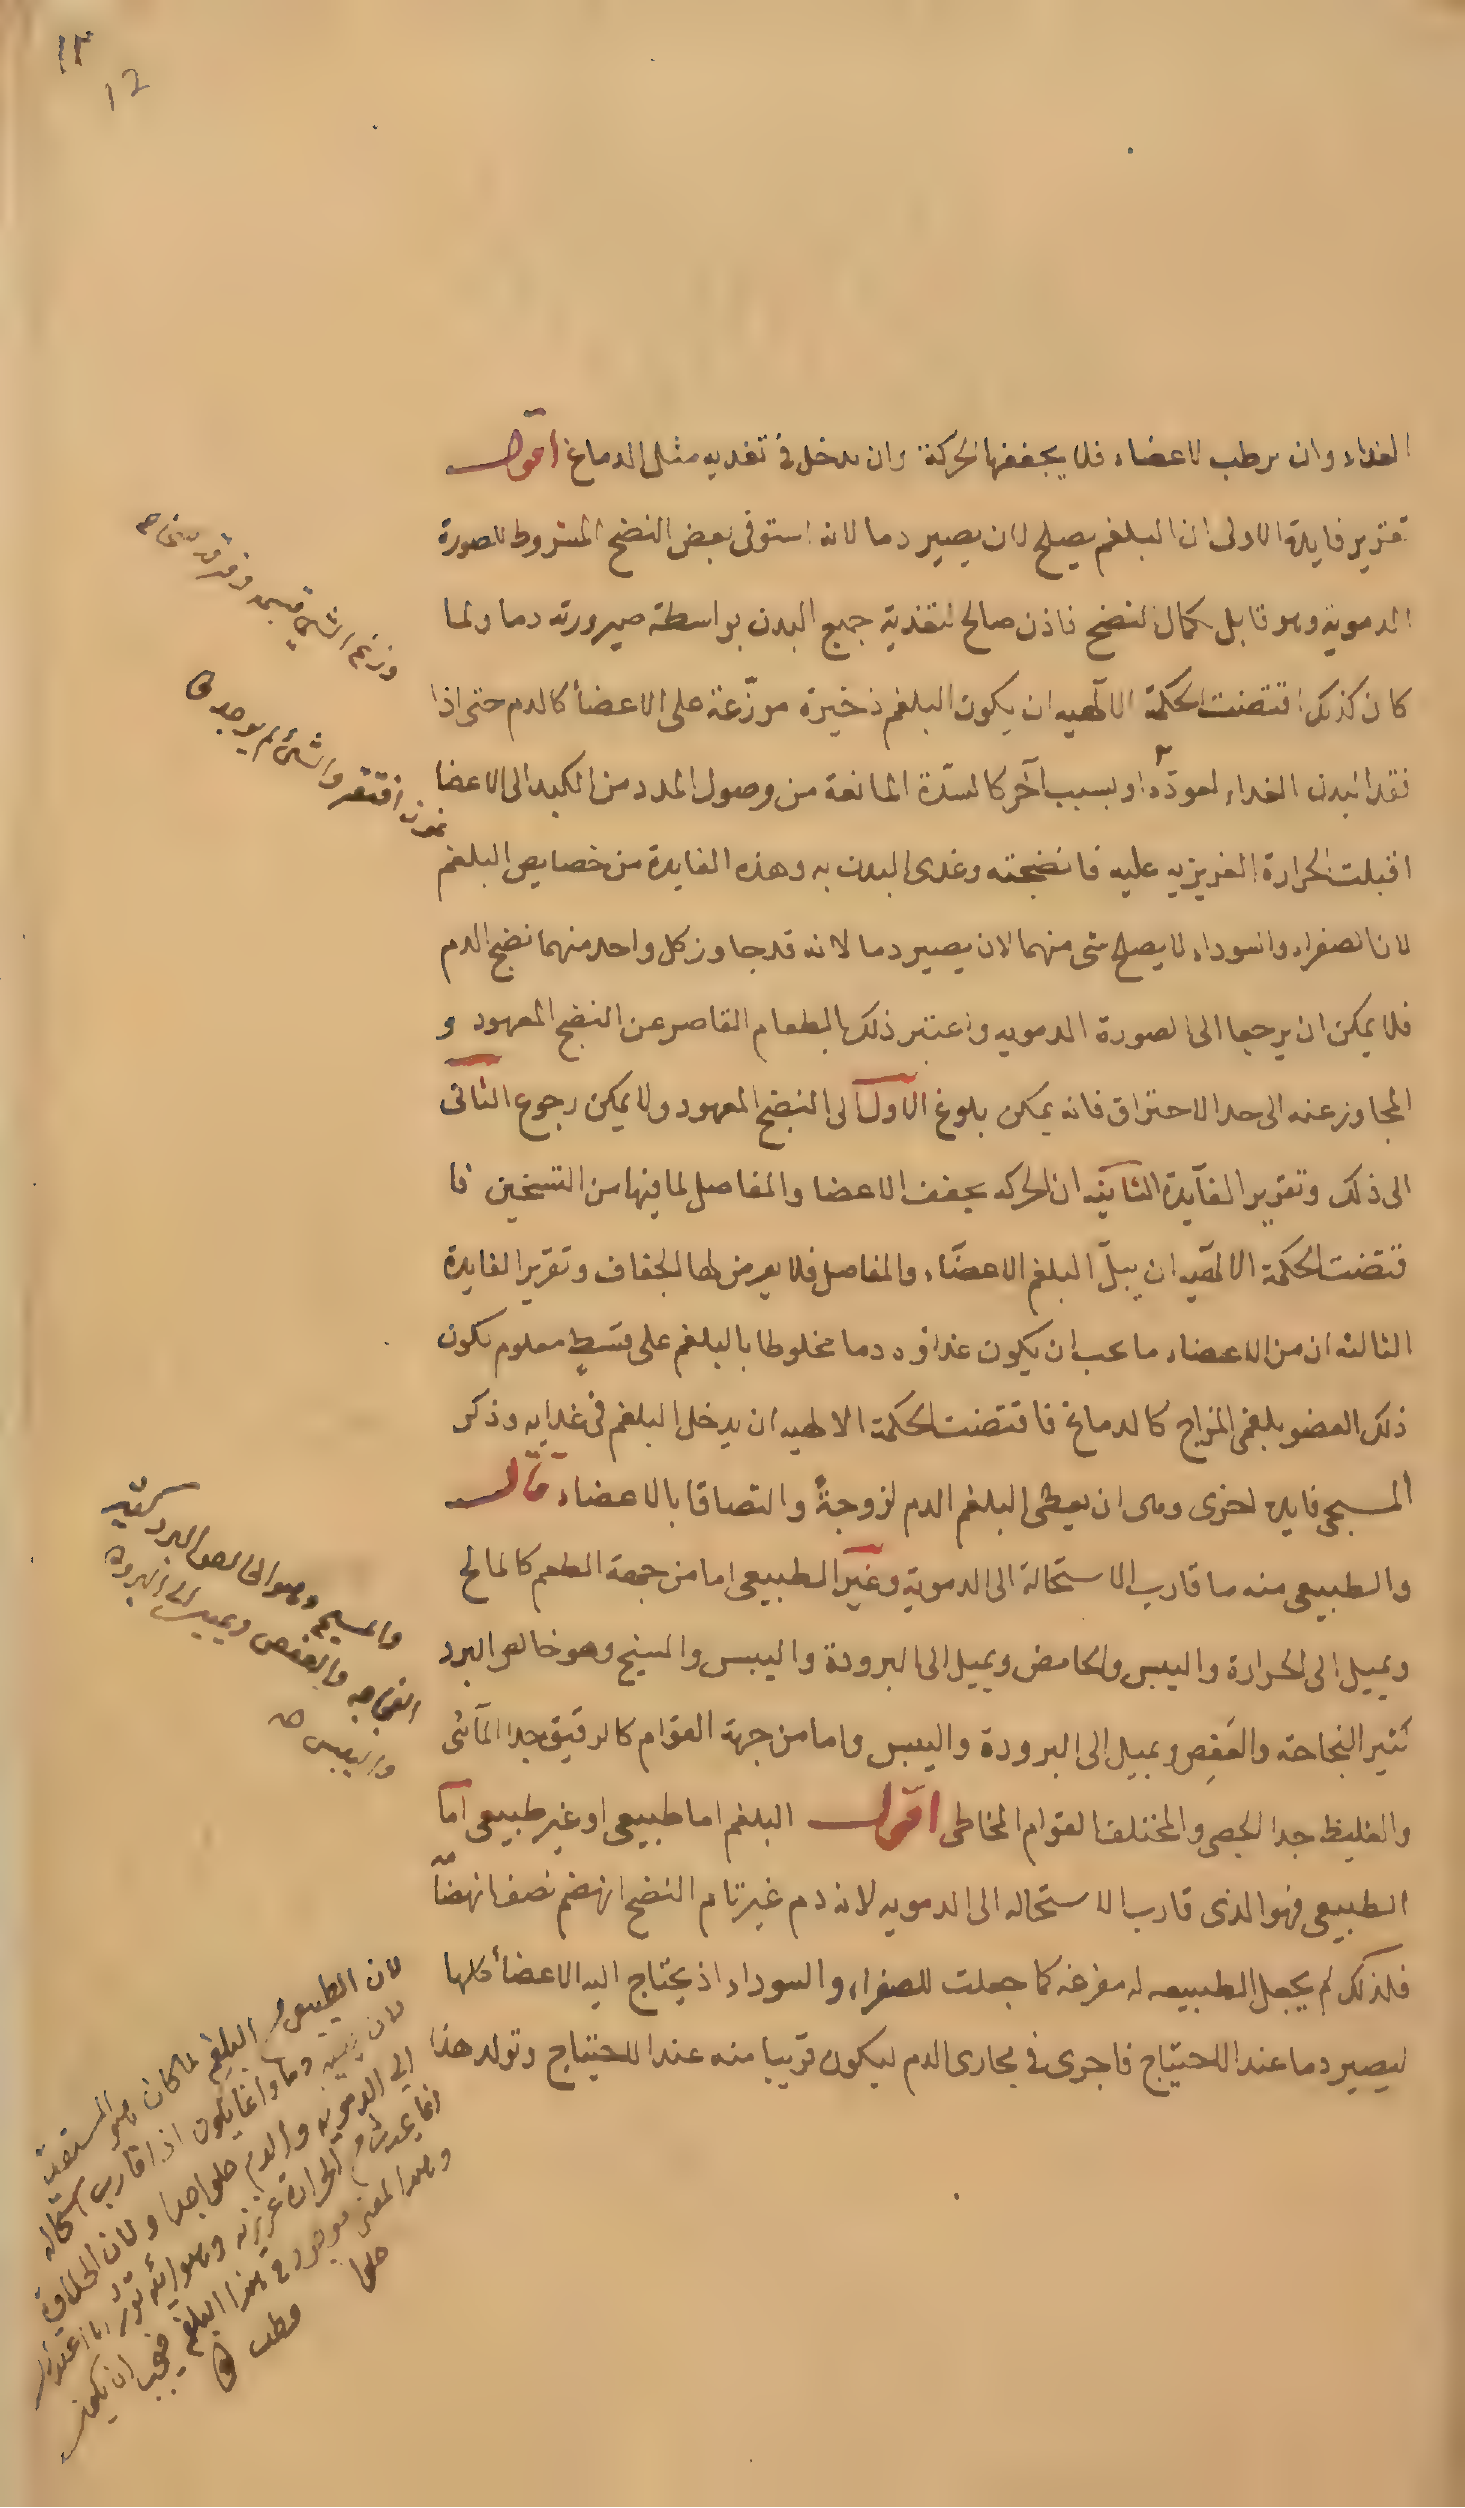 ١٢
12
الغداء وان يرطب الاعضاء فلا يجففها الحركة وان يدخل فى تغديه مثل الدماغ اقول
تقرير فايدة الاولى ان البلغم يصلح لان يصير دما لانه استوفى بعض النضج المشروط للصورة
الدموية وهو قابل لكمال النضج فاذن صالح لتغذية جميع البدن بواسطة صيرورته دما ولما
كان كذلك اقتضت الحكمة الالهيه ان يكون البلغم ذخيرة موزّعة على الاعضأ كالدم حتى اذا
فقد البدن الغداء او بسبب آخر كالسدّة المانعة من وصول المدد من الكبد الى الاعضا
اقبلت الحرارة الغريزيه عليه فانضجته وغدى البدن به وهذه الفايدة من خصايص البلغم
لان الصفراء والسوداء لا يصلح شى منهما لان يصير دما لانه قد جاوز كل واحد منهما نضج الدم
فلا يمكن ان يرجعا الى الصورة الدمويه واعتبر ذلك بالطعام القاصر عن النضج المعهود و
المجاوز عنه الى حد الاحتراق فانه يمكن بلوغ الاول الى النضج المعهود ولا يمكن رجوع الثانى
الى ذلك وتقرير الفايدة الثانيه ان الحركه يجفف الاعضا والمفاصل لما فيها من التسخين فا
قتضت الحكمة الالهيه ان يبلّ البلغم الاعضاء والمفاصل فلا يعرض لها الجفاف وتقرير الفايدة
الثالثه ان من الاعضاء ما يجب ان يكون غداؤه دما مخلوطا بالبلغم على قسطٍ معلوم بكون
ذلك العضو بلغمى المزاج كالدماغ فاقتضت الحكمة الالهيه ان يدخل البلغم فى غدايه وذكر
المسيحى فايدة اخرى وهى ان يعطى البلغم الدم لزوجةً والتصاقا بالاعضاء قال
والطبيعى منه ما قارب الاستحالة الى الدموية وغير الطبيعى اما من جهة الطعم كالمالح
ويميل الى الحرارة واليبس والحامض ويميل الى البرودة واليبس والمسيخ وهو خالص البرد
كثير النجاحته والعَفِص ويميل الى البرودة واليبس واما من جهة القوام كالرقيق جدا المائى
والغليظ جدا الجصى والمختلف القوام المخاطى اقول البلغم اما طبيعى او غير طبيعى اما
الطبيعى فهو الذى قارب الاستحاله الى الدمويه لانه دم غير تام النضج انهضم نصف انهضام
فلذلك لم يجعل الطبيعه له مفرغه كما جعلت للصفراء والسوداء اذ يحتاج اليه الاعضأ كلها
ليصير دما عند الاحتياج فاجرى فى مجارى الدم ليكون قريبا منه عند الاحتياج وتولد هذا
والمسيخ وهو الخالص البرد كثير
الفجاجه والعفص ويميل الى البرودة
واليبس
لان الطبيعى البلغم لما كان هو المستعد
الى الدمويه والدم حلو جدا ولان الحلاوة
وهذا المعنى موجود فى هذا البلغم فيجب ان يكون
حلوا